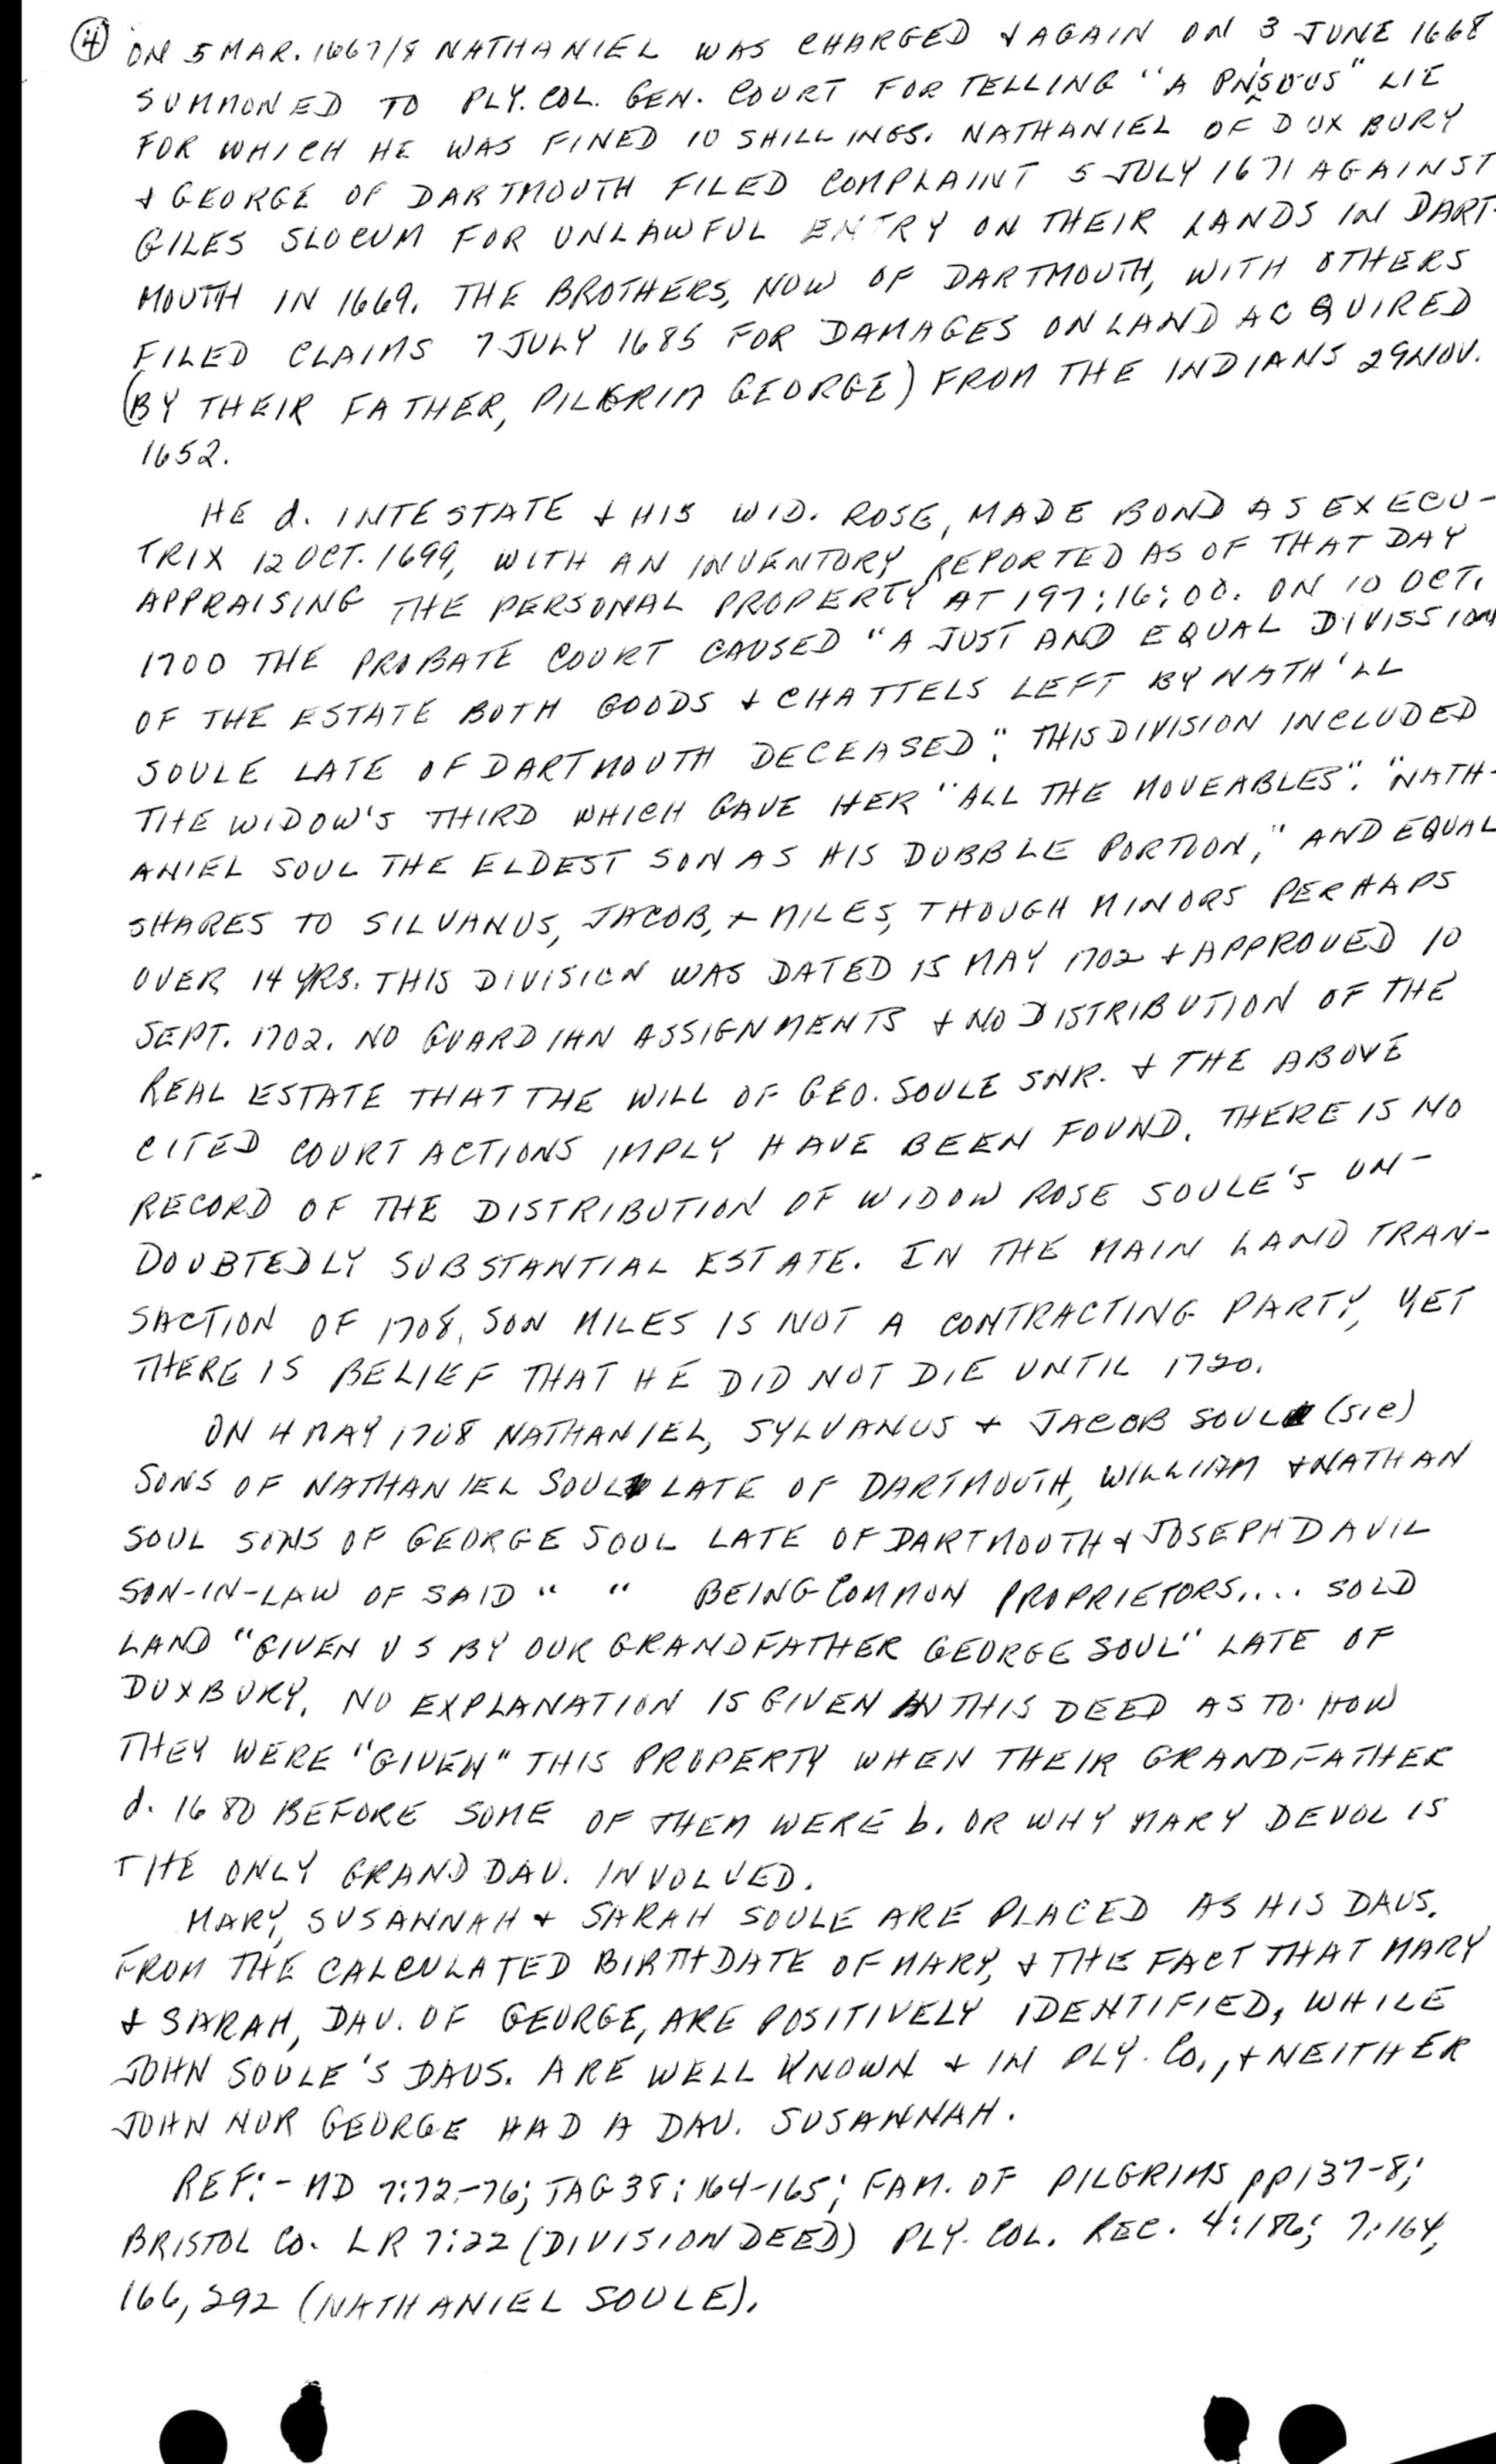 ④ ON 5 MAR. 1667/8 NATHANIEL WAS CHARGED & AGAIN ON 3 JUNE 1668
SUMMONED TO PLY. COL. GEN. COURT FOR TELLING "A LIE
FOR WHICH HE WAS FINED 10 SHILLINGS. NATHANIEL OF DUXBURY
& GEORGE OF DARTMOUTH FILED COMPLAINT 5 JULY 1671 AGAINST
GILES SLOCUM FOR UNLAWFUL ENTRY ON THEIR LANDS IN DART-
MOUTH IN 1669. THE BROTHERS, NOW OF DARTMOUTH, WITH OTHERS
FILED CLAIMS 7 JULY 1685 FOR DAMAGES ON LAND ACQUIRED
(BY THEIR FATHER, PILGRIM GEORGE) FROM THE INDIANS 29 NOV.
1652.
HE d. INTESTATE & HIS WID. ROSE, MADE BOND AS EXECU-
TRIX 12 OCT. 1699, WITH AN INVENTORY REPORTED AS OF THAT DAY
APPRAISING THE PERSONAL PROPERTY AT 197:16:00. ON 10 OCT.
1700 THE PROBATE COURT CAUSED "A JUST AND EQUAL DIVISSION
OF THE ESTATE BOTH GOODS & CHATTELS LEFT BY NATH'LL
SOULE LATE OF DARTMOUTH DECEASED". THIS DIVISION INCLUDED
THE WIDOW'S THIRD WHICH GAVE HER "ALL THE MOVEABLES". "NATH-
ANIEL SOUL THE ELDEST SON AS HIS DUBBLE PORTION," AND EQUAL
SHARES TO SILVANUS, JACOB, & MILES, THOUGH MINORS PERHAPS
OVER 14 YRS. THIS DIVISION WAS DATED 15 MAY 1702 & APPROVED 10
SEPT. 1702. NO GUARDIAN ASSIGNMENTS & NO DISTRIBUTION OF THE
REAL ESTATE THAT THE WILL OF GEO. SOULE SNR. & THE ABOVE
CITED COURT ACTIONS IMPLY HAVE BEEN FOUND. THERE IS NO
RECORD OF THE DISTRIBUTION OF WIDOW ROSE SOULE'S UN-
DOUBTEDLY SUBSTANTIAL ESTATE. IN THE MAIN LAND TRAN-
SACTION OF 1708, SON MILES IS NOT A CONTRACTING PARTY, YET
THERE IS BELIEF THAT HE DID NOT DIE UNTIL 1720.
ON 4 MAY 1708 NATHANIEL, SYLVANUS & JACOB SOUL (sic)
SONS OF NATHANIEL SOUL LATE OF DARTMOUTH, WILLIAM & NATHAN
SOUL SONS OF GEORGE SOUL LATE OF DARTMOUTH & JOSEPH DAVIL
SON-IN-LAW OF SAID " " BEING COMMON PROPRIETORS.... SOLD
LAND "GIVEN US BY OUR GRANDFATHER GEORGE SOUL" LATE OF
DUXBURY. NO EXPLANATION IS GIVEN IN THIS DEED AS TO HOW
THEY WERE "GIVEN" THIS PROPERTY WHEN THEIR GRANDFATHER
d. 1680 BEFORE SOME OF THEM WERE b. OR WHY MARY DEVOL IS
THE ONLY GRAND DAU. INVOLVED.
MARY, SUSANNAH & SARAH SOULE ARE PLACED AS HIS DAUS.
FROM THE CALCULATED BIRTHDATE OF MARY, & THE FACT THAT MARY
& SARAH, DAU. OF GEORGE, ARE POSITIVELY IDENTIFIED, WHILE
JOHN SOULE'S DAUS. ARE WELL KNOWN & IN PLY. CO., & NEITHER
JOHN NOR GEORGE HAD A DAU. SUSANNAH.
REF:- MD 7:72-76; TAG 38:164-165; FAM. OF PILGRIMS pp 137-8;
BRISTOL CO. LR 7:22 (DIVISION DEED) PLY. COL. REC. 4:186; 7:164,
166, 292 (NATHANIEL SOULE).